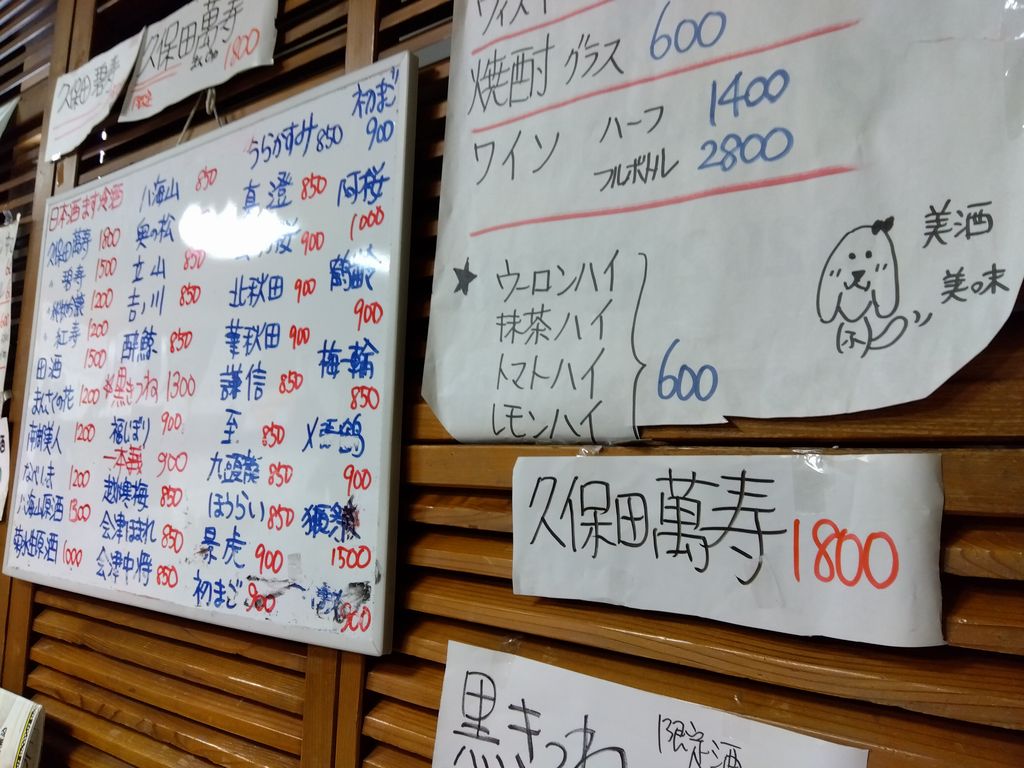 久保田碧寿
久保田萬寿
1800
日本酒ます冷酒
久保田萬寿 1800
〃 碧寿 1500
〃 紅寿 1200
田酒 1500
まんさくの花 1200
南部美人 1200
なべしま 1200
八海山原酒 1300
菊水生原酒 1000
八海山 850
奥の松 850
立山 850
吉川 850
酔鯨 850
黒きつね 1300
福しぼり 900
一本義 900
越乃寒梅 850
会津ほまれ 850
会津中将 850
うらがすみ 850
真澄 850
900
北秋田 900
華秋田 900
謙信 850
至 850
九頭龍 850
ほうらい 850
景虎 900
初まご 900
初まご 900
阿桜 1000
鶴齢 900
梅一輪 850
〆張鶴 900
獺祭 1500
900
焼酎 グラス 600
ワイン ハーフ 1400
フルボトル 2800
★ ウーロンハイ
抹茶ハイ
トマトハイ
レモンハイ
600
美酒
美味
久保田萬寿 1800
黒きつね 限定酒